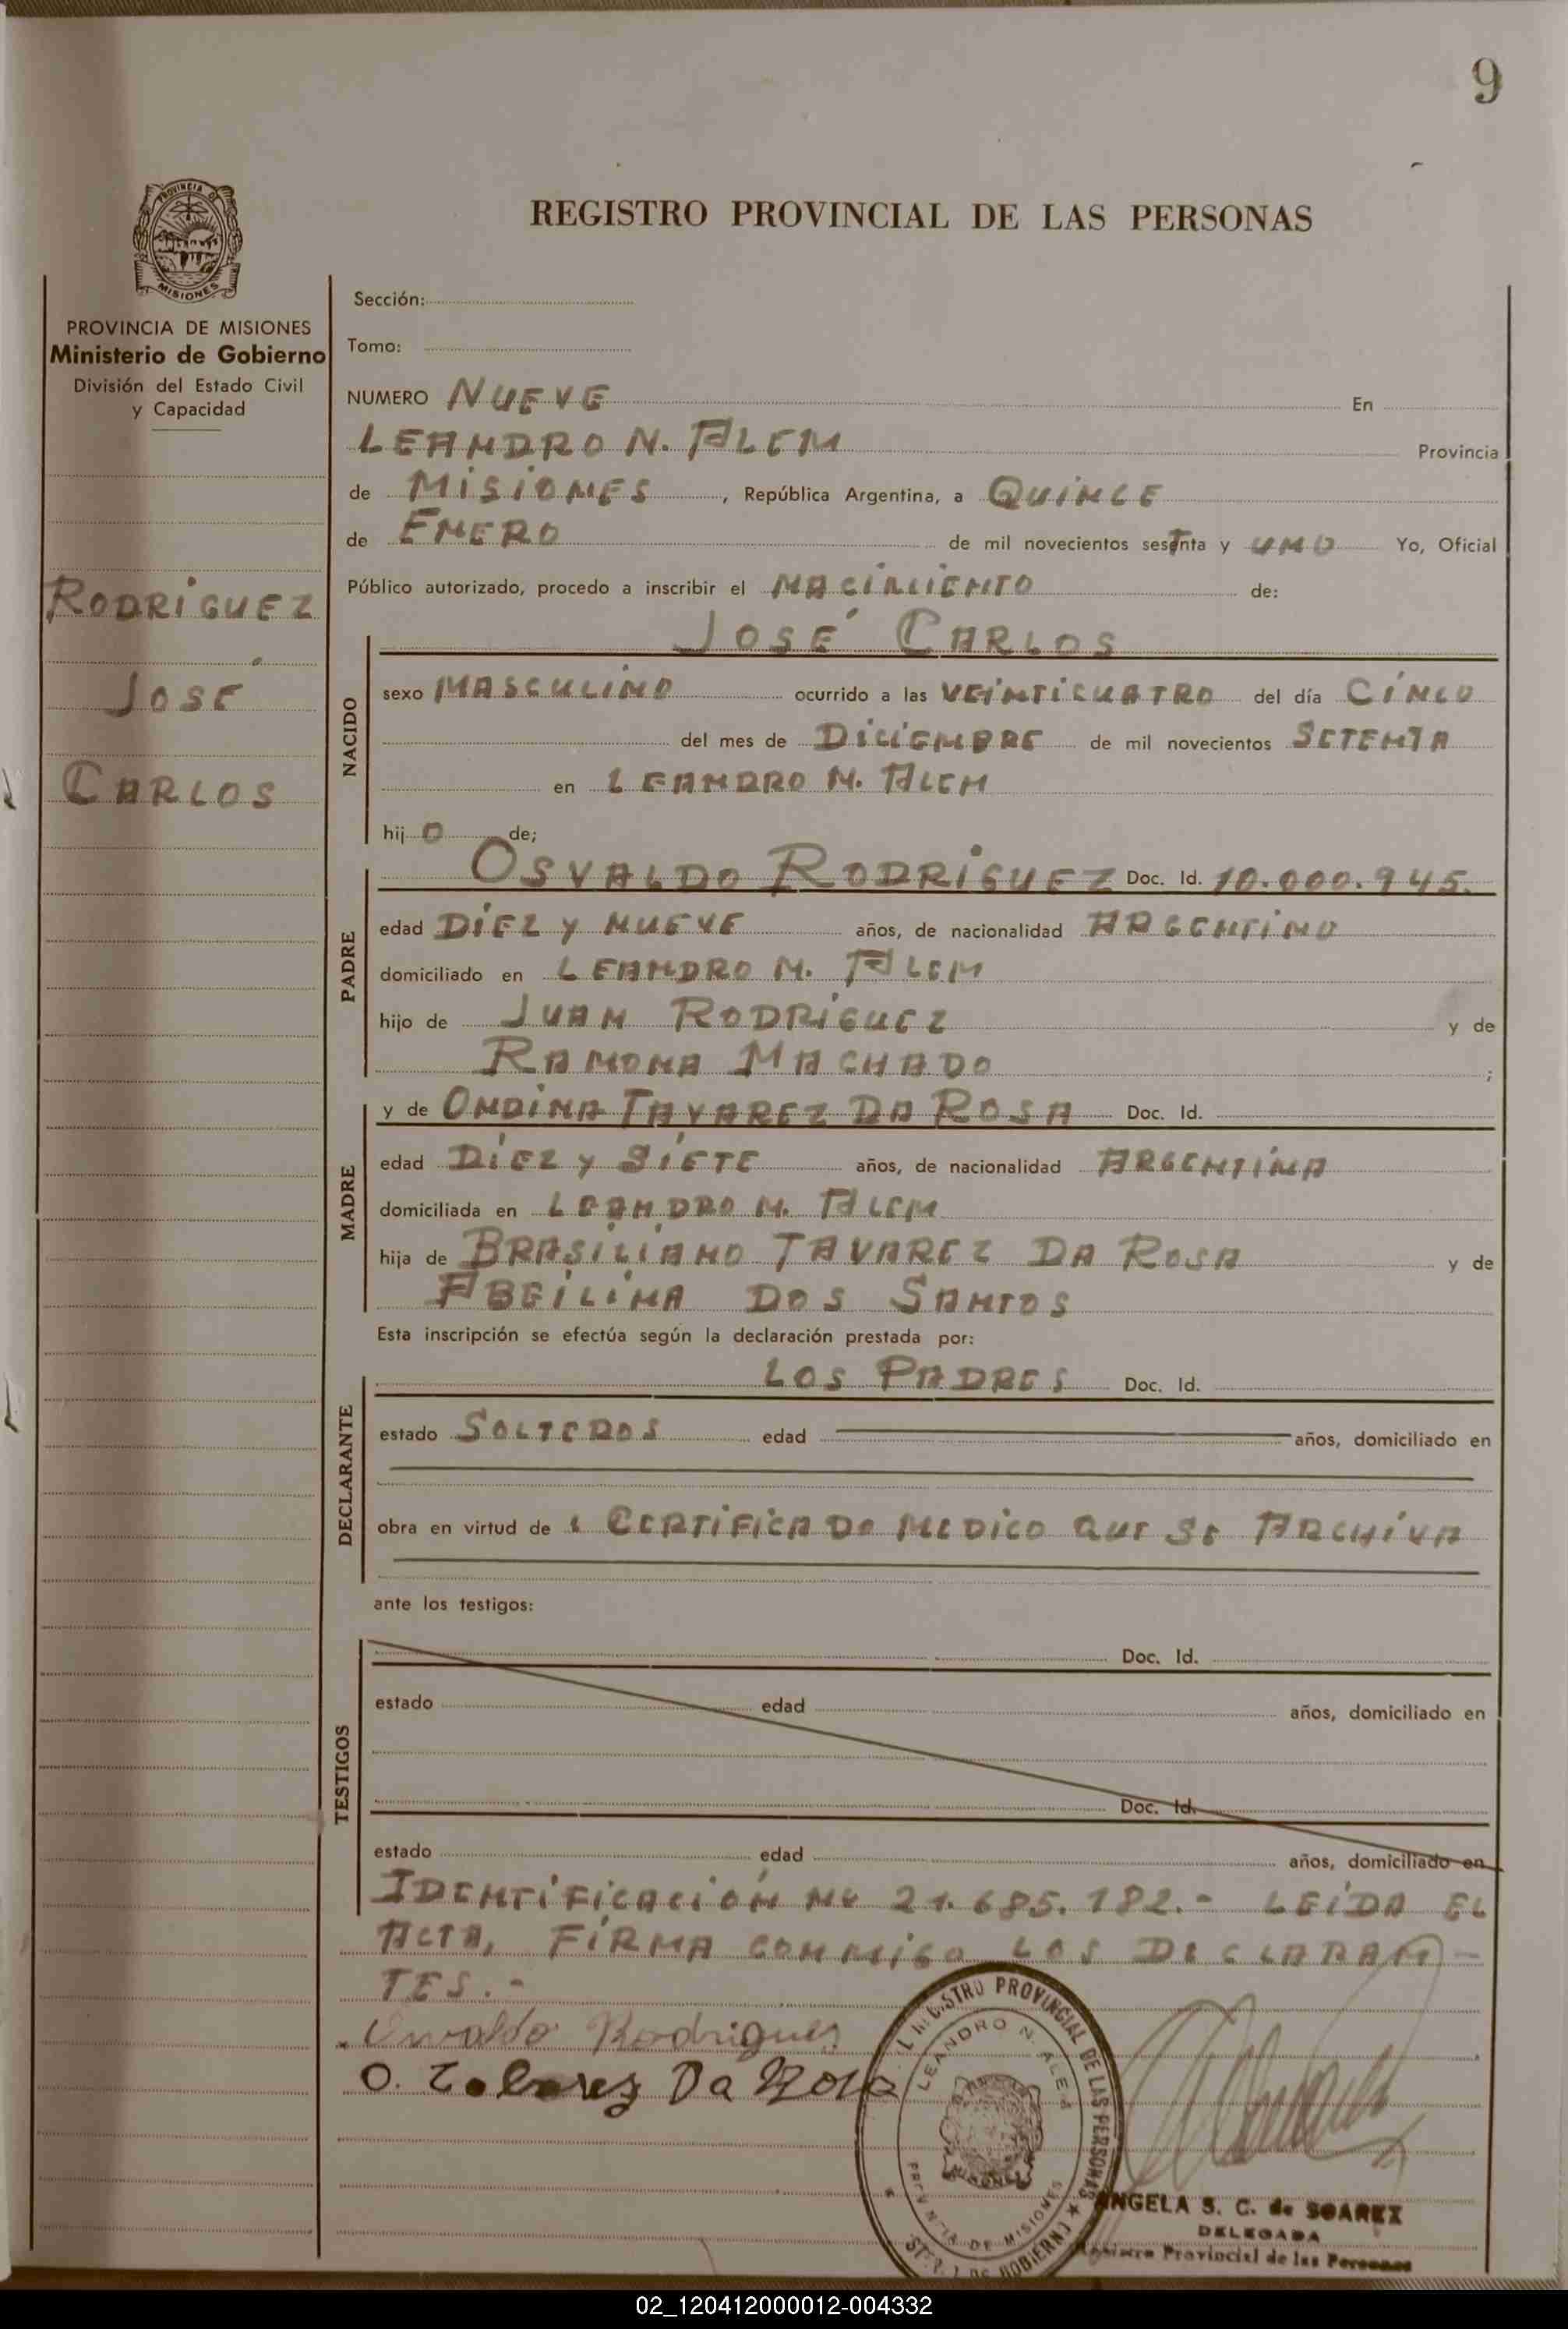 9
PROVINCIA DE
MISIONES
REGISTRO PROVINCIAL DE LAS PERSONAS
PROVINCIA DE MISIONES
Ministerio de Gobierno
División del Estado Civil
y Capacidad
RODRIGUEZ
JOSÉ
CARLOS
Sección:
Tomo:
NUMERO NUEVE En
LEANDRO N. ALEM Provincia
de MISIONES, República Argentina, a QUINCE
de ENERO de mil novecientos setenta y UNO Yo, Oficial
Público autorizado, procedo a inscribir el NACIMIENTO de:
NACIDO
JOSÉ CARLOS
sexo MASCULINO ocurrido a las VEINTICUATRO del día CINCO
del mes de DICIEMBRE de mil novecientos SETENTA
en LEANDRO N. ALEM
hijo de;
PADRE
OSVALDO RODRIGUEZ Doc. Id. 10.000.945.
edad DIEZ Y NUEVE años, de nacionalidad ARGENTINO
domiciliado en LEANDRO N. ALEM
hijo de JUAN RODRIGUEZ y de
RAMONA MACHADO ;
MADRE
y de ONDINA TAVAREZ DA ROSA Doc. Id.
edad DIEZ Y SIETE años, de nacionalidad ARGENTINA
domiciliada en LEANDRO N. ALEM
hija de BRASILIANO TAVAREZ DA ROSA y de
ABEILINA DOS SANTOS
Esta inscripción se efectúa según la declaración prestada por:
DECLARANTE
LOS PADRES Doc. Id.
estado SOLTEROS edad años, domiciliado en
obra en virtud de CERTIFICADO MEDICO QUE SE ARCHIVA
ante los testigos:
TESTIGOS
Doc. Id.
estado edad años, domiciliado en
Doc. Id.
estado edad años, domiciliado en
IDENTIFICACIÓN Nº 21.685.182.- LEIDA EL
ACTA, FIRMA CONMIGO LOS DECLARAN-
TES.-
Osvaldo Rodriguez
O. Tavarez Da Rosa
PROVINCIAL DE LAS PERSONAS
LEANDRO N. ALEM
DE MISIONES
ANGELA S. C. de SOAREZ
DELEGADA
Registro Provincial de las Personas
02_120412000012-004332